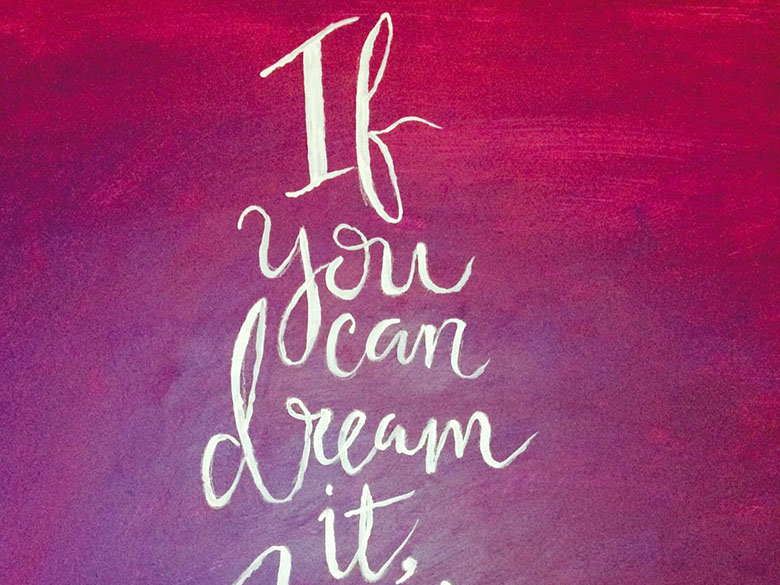 If
you
can
dream
it,